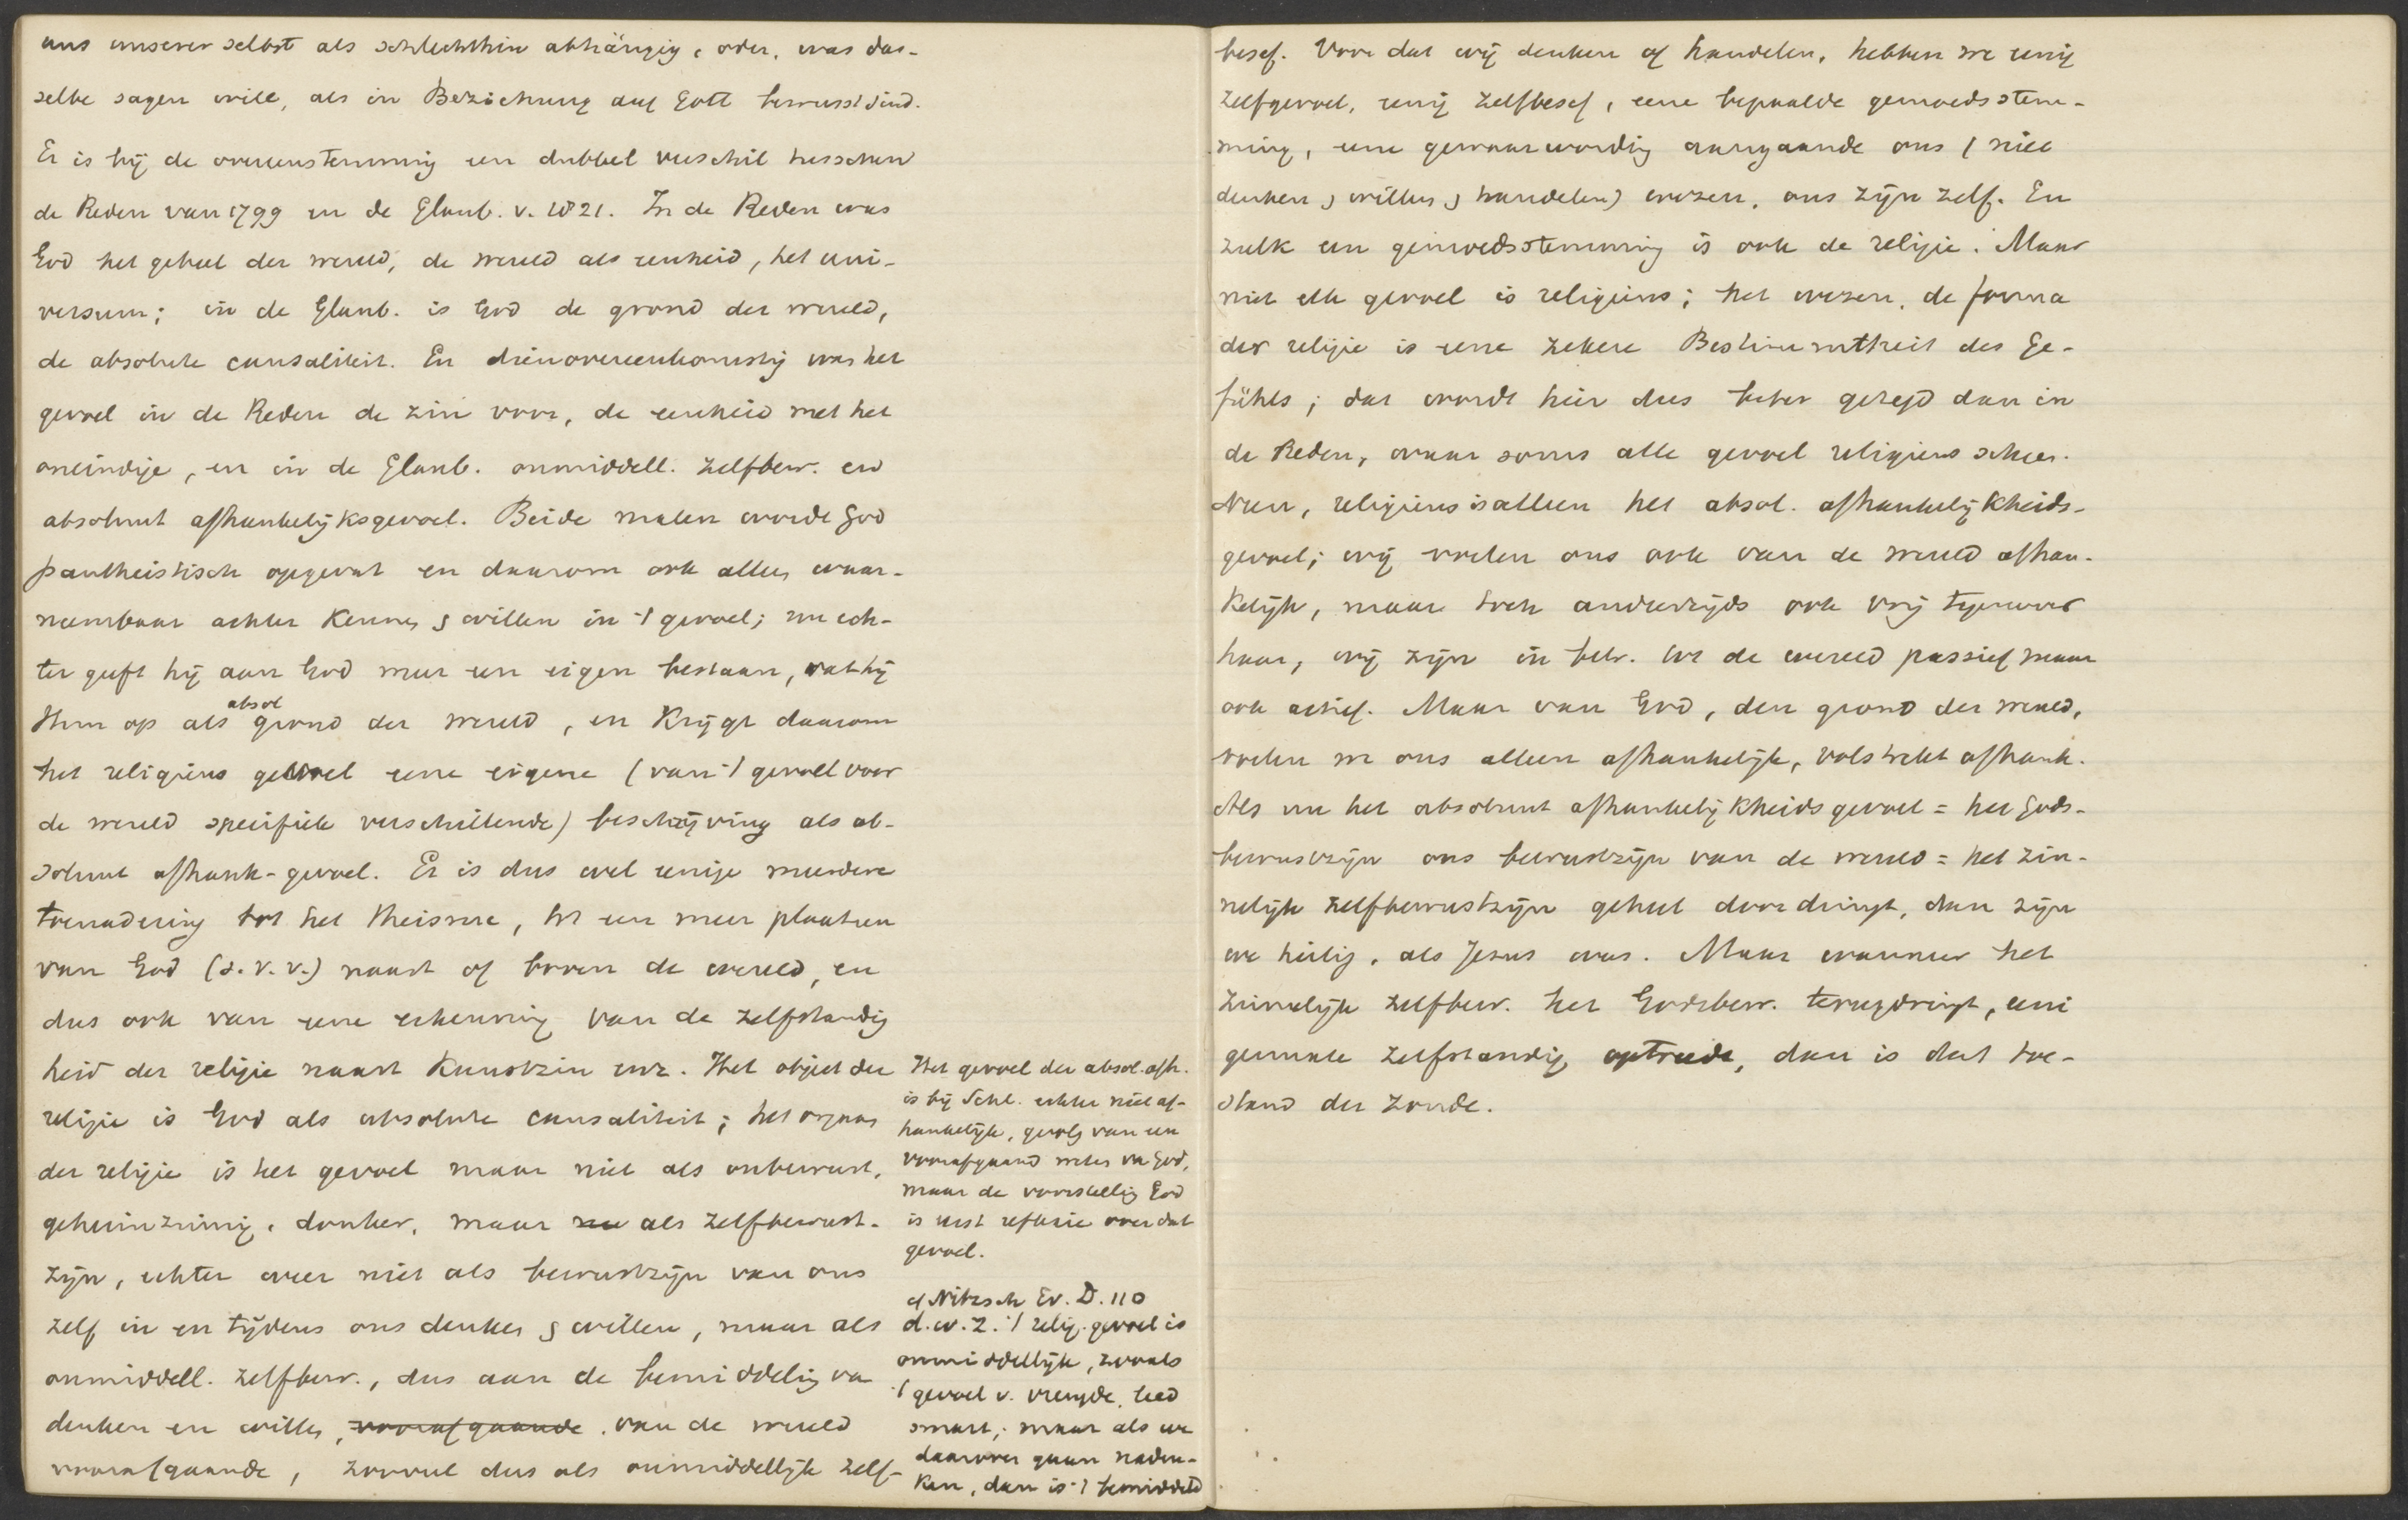 uns unserer selbst als schlechthin abhängig, oder, was das-
selbe sagen will, als in Beziehung auf Gott bewusst sind.
Er is bij de overeenstemming een dubbel verschil tusschen
de Reden van 1799 en de Glaub. v. 1821. In de Reden was
God het geheel der wereld, de wereld als eenheid, het uni-
versum; in de Glaub. is God de grond der wereld,
de absolute causaliteit. En dienovereenkomstig was het
gevoel in de Reden de zin voor, de eenheid met het
oneindige, en in de Glaub. onmiddell. zelfbew. en
absoluut afhankelijksgevoel. Beide malen wordt God
pantheistisch opgevat en daarom ook alleen waar-
neembaar achter kennen & willen in 't gevoel; nu ech-
ter geeft hij aan God meer een eigen bestaan, vat hij
Hem op als absol grond der wereld, en krijgt daarom
het religieus gevoel eene eigene (van 't gevoel voor
de wereld specifiek verschillende) beschrijving als ab-
soluut afhank-gevoel. Er is dus wel eenige meerdere
toenadering tot het theisme, tot een meer plaatsen
van God (d.v.v.) naast of boven de wereld, en
dus ook van eene erkenning van de zelfstandig
heid der religie naast kunstzin enz. Het object der
religie is God als absolute causaliteit; het orgaan
der religie is het gevoel maar niet als onbewust,
geheimzinnig, donker, maar nu als zelfbewust-
zijn, echter weer niet als bewustzijn van ons
zelf in en tijdens ons denken & willen, maar als
onmiddell. zelfbew., dus aan de bemiddeling va
denken en willen, voorafgaande. van de wereld
voorafgaande, zooveel dus als onmiddellijk zelf-
Het gevoel der absol. afh.
is bij Schl. echter niet af-
hankelijk, gevolg van een
voorafgaand weten va God,
maar de voorstelling God
is eerst reflexie over dat
gevoel.
cf Nitzsch Ev. D. 110
d.w.z. 't relig. gevoel is
onmiddellijk, zooals
't gevoel v. vreugde, leed
smart; maar als we
daarover gaan naden-
ken, dan is 't bemiddeld
besef. Voor dat wij denken of handelen, hebben we eenig
zelfgevoel, eenig zelfbesef, eene bepaalde gemoedsstem-
ming, eene gewaarwording aangaande ons (niet
denken & willen & handelen) wezen, ons zijn zelf. En
zulk een gemoedsstemming is ook de religie. Maar
niet elk gevoel is religieus; het wezen, de forma
der religie is eene zekere Bestimmtheit des Ge-
fühls; dat wordt hier dus beter gezegd dan in
de Reden, waar soms alle gevoel religieus scheen.
Neen, religieus is alleen het absol. afhankelijkheids-
gevoel; wij voelen ons ook van de wereld afhan-
kelijk, maar toch anderzijds ook vrij tegenover
haar, wij zijn in betr. tot de wereld passief maar
ook actief. Maar van God, den grond der wereld,
voelen we ons alleen afhankelijk, volstrekt afhank.
Als nu het absoluut afhankelijkheidsgevoel = het Gods-
bewustzijn ons bewustzijn van de wereld = het zin-
nelijk zelfbewustzijn geheel doordringt, dan zijn
we heilig, als Jezus was. Maar wanneer het
zinnelijk zelfbew. het Godsbew. terugdringt,
zelfstandig optreedt, dan is dat toe-
stand der zonde.